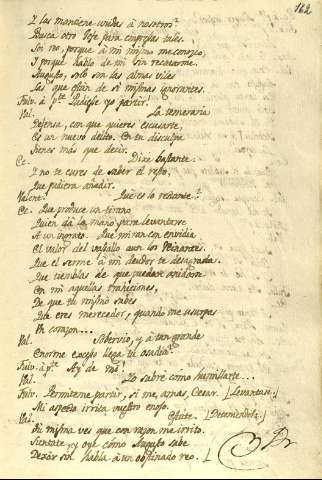 162
Y las mantiene unidas à nosotros?
Busca otro Jefe para empresas tales.
Yo no, porque à mi mismo me conozco,
Y porque hablo de mi sin recatarme.
Augusto, solo son las almas viles
Las que estàn de si mismas ignorantes.
Fulv. à pte. Pudiese yo partir!
Val. La temeraria
Defensa, con que quieres escusarte,
Es un nuevo delito. En tu disculpa
Tienes mas que decir.
Ce. Dixe bastante:
Y no te cures de saber el resto,
Que pudiera añadir.
Valent. Què es lo restante?
Ce. Que produce un tirano
Quien dà la mano para levantarse
A un ingrato. Que miran con envidia
El valor del vasallo aun los Reinantes.
Que el serme à mi deudor te desagrada.
Que tiemblas de que pueda
Con mi aquellas traiciones,
De que tu mismo sabes
Que eres merecedor, quando me usurpas
Un corazon...
Val. Sobervio, y à tan grande
Enorme exceso llega tu osadia?
Fulv. à pte. Ay de mi!
Val. Yo sabrè como humillarte...
Fulv. Permiteme partir, si me amas, Cesar. [Levantase.]
Mi aspecto irrita vuestro enojo.
Val. [Deteniendola.]
Tu misma ves que con razon me irrito.
Sientate, y oye còmo Augusto sabe
Dexar sin habla à un obstinado reo.